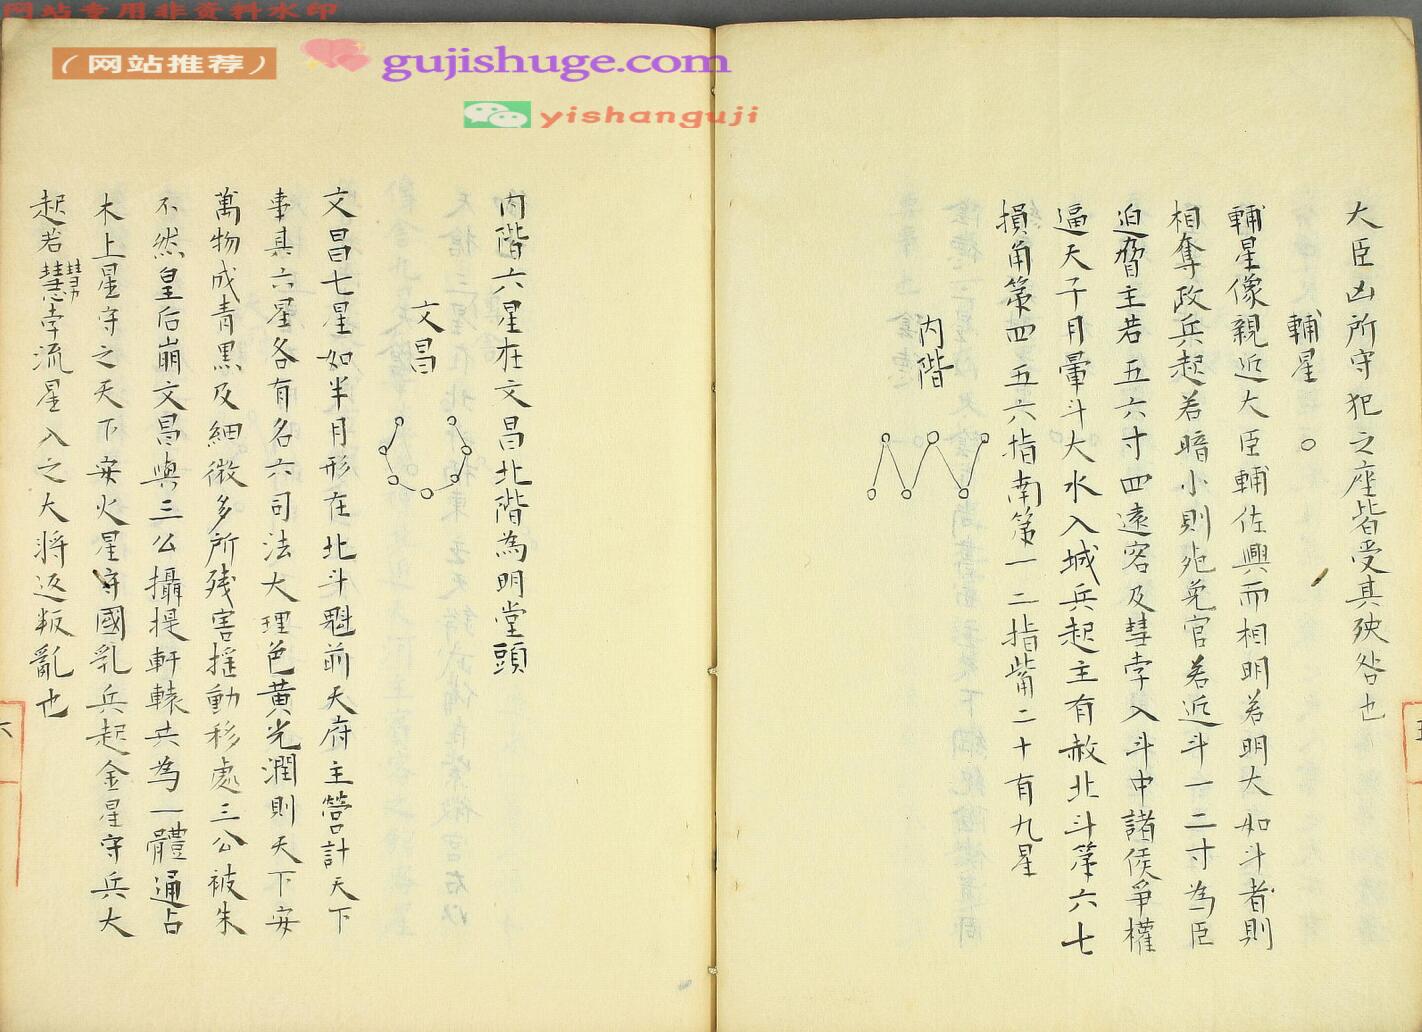 网站专用非资料水印
(网站推荐)
gujishuge.com
yishanguji
大臣凶所守犯之座皆受其殃咎也
輔星
輔星像親近大臣輔佐興而相明若明大如斗者則
相奪政兵起若暗小則死免官若近斗一二寸為臣
迫脅主若五六寸四遠客及彗孛入斗中諸侯爭權
逼天子月暈斗大水入城兵起主有赦北斗第六七
損角第四五六指南第一二指觜二十有九星
内階
内階六星在文昌北階為明堂頭
文昌
文昌七星如半月形在北斗魁前天府主營計天下
事其六星各有名六司法大理色黄光潤則天下安
萬物成青黒及細微多所残害揺動移處三公被朱
不然皇后崩文昌與三公攝提軒轅共為一體通占
木土星守之天下安火星守國乱兵起金星守兵大
起若彗孛流星入之大将返叛亂也
五
六